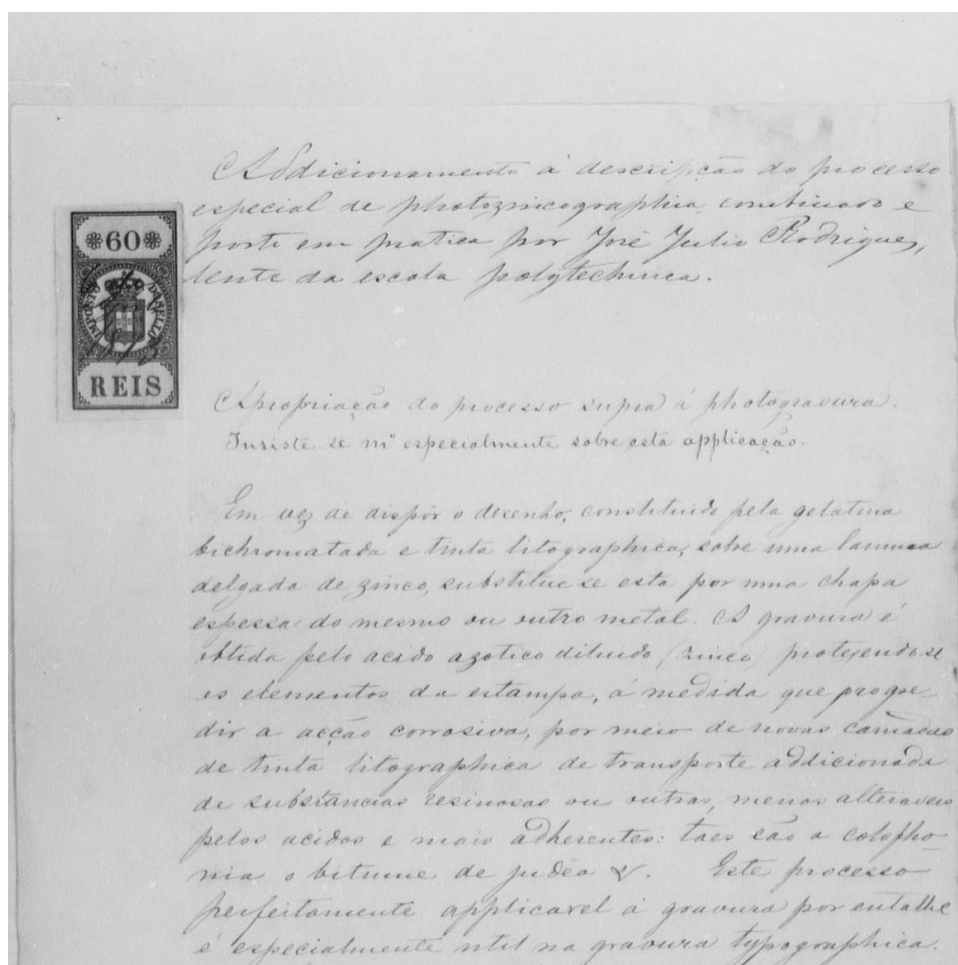 Addicionamento á descripção do processo
especial de photozincographia, combinado e
posto em pratica por José Julio Rodrigues,
lente da escola polytechnica.
❋60❋
IMPOSTO DA SELLO
REIS
Apropriação do processo supra á photogravura.
Insiste-se mto especialmente sobre esta applicação.
Em vez de dispôr o desenho, constituido pela gelatina
bichromatada e tinta litographica, sobre uma lamina
delgada de zinco, substitue-se esta por uma chapa
espessa do mesmo ou outro metal. A gravura é
obtida pelo acido azotico diluido (zinco) protejendo-se
os elementos da estampa, á medida que progre
dir a acção corrosiva, por meio de novas camadas
de tinta litographica de transporte addicionada
de substancias resinosas ou outras, menos alteraveis
pelos acidos e mais adherentes: taes são a colopho
nia o bitume de judéa &. Este processo
perfeitamente applicavel á gravura por entalhe
é especialmente util na gravura typographica.